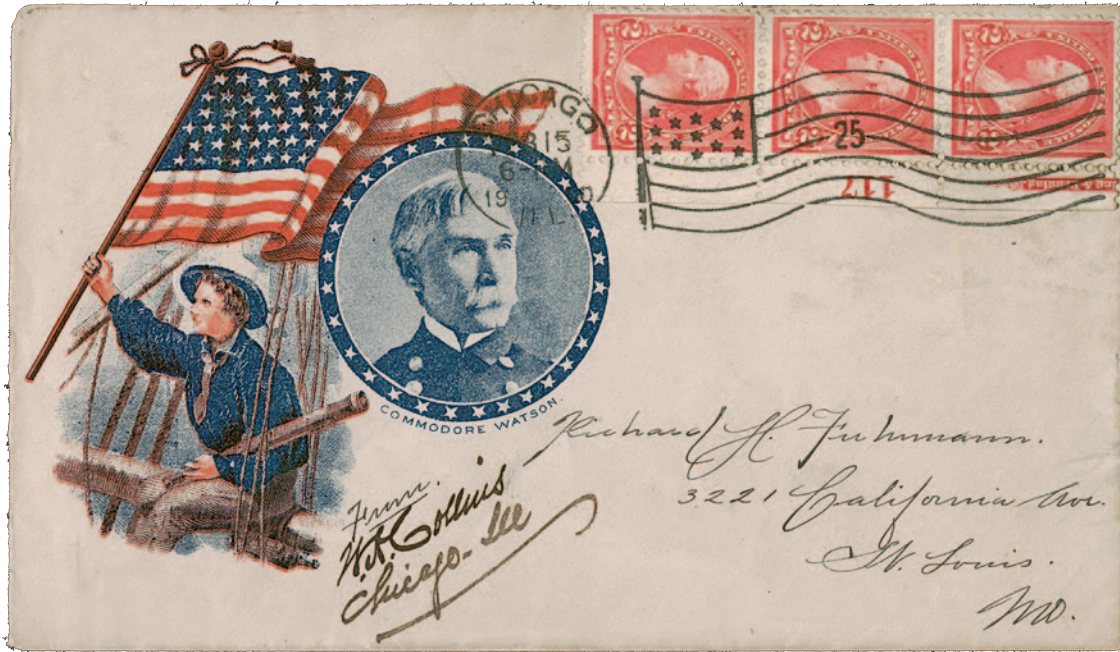 CHICAGO
15
6-
19
ILL.
25
117
COMMODORE WATSON.
Richard H. Fuhrmann.
3221 California Ave.
St. Louis.
Mo.
From.
W.A. Collins
Chicago - Ill